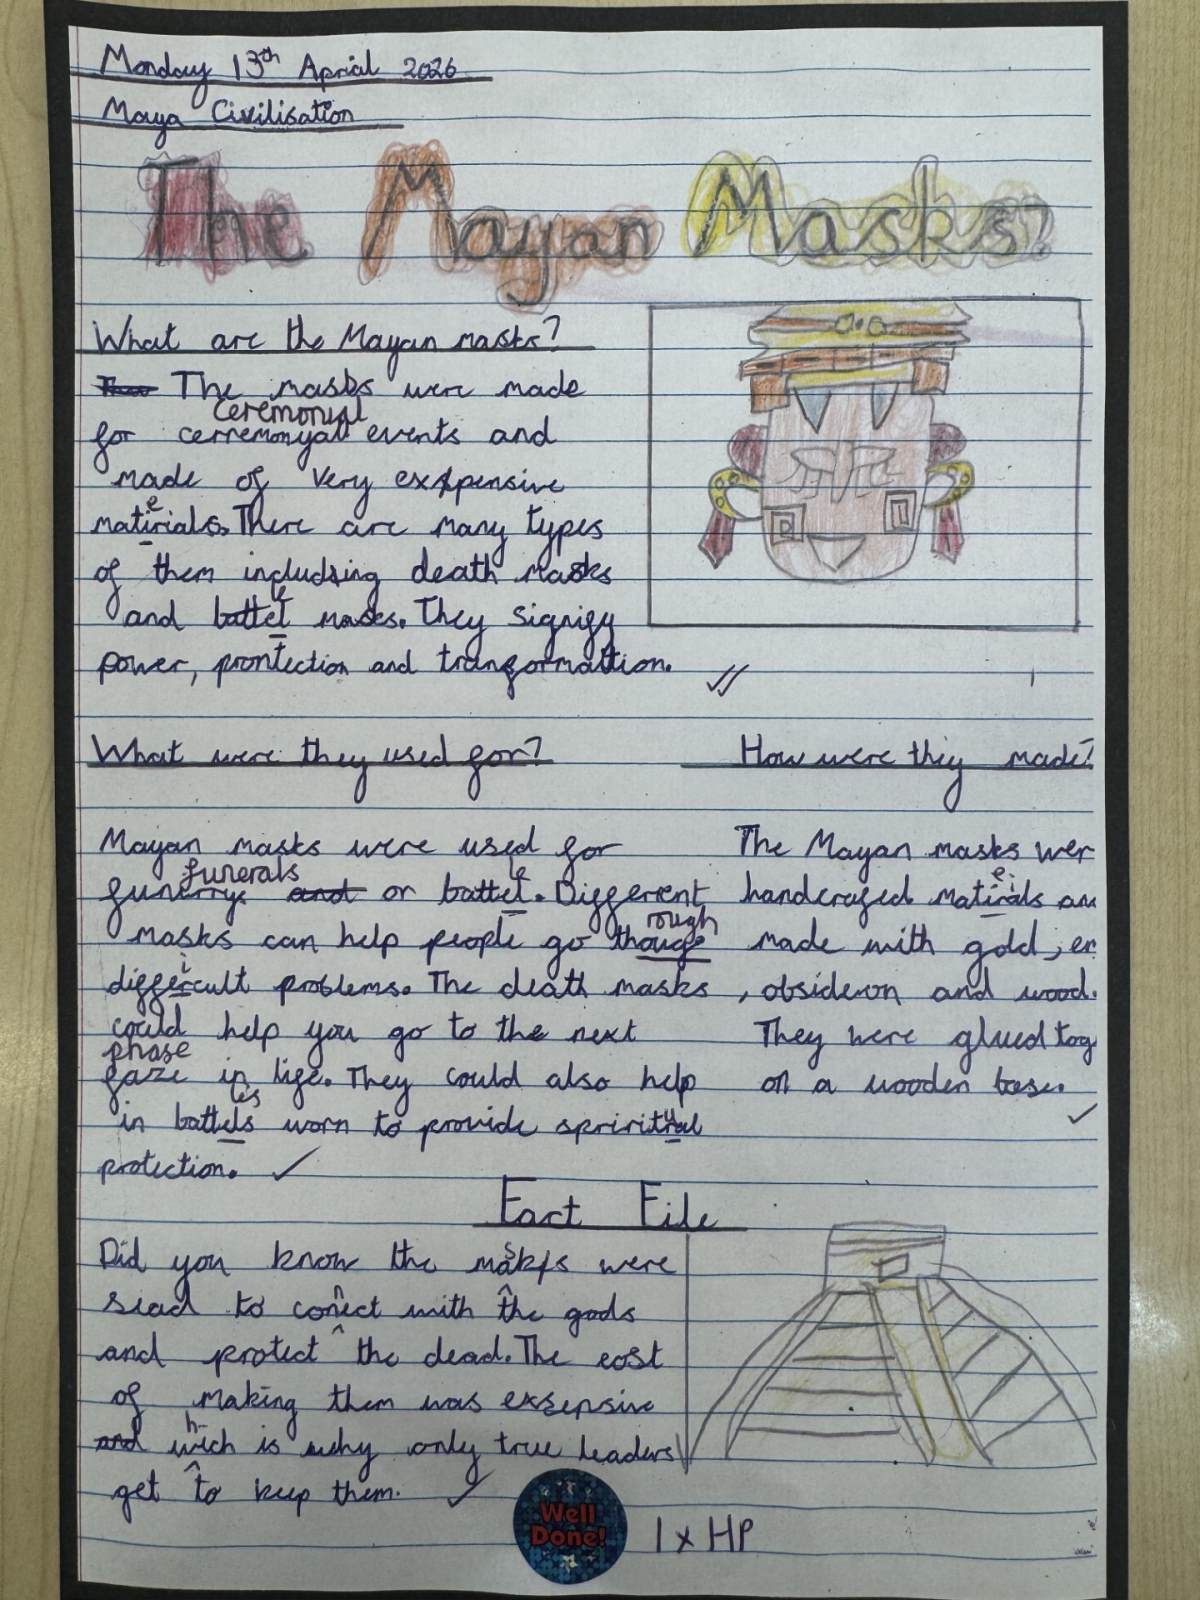 Monday 13th Aprial 2026
Maya Civilisation
The Mayan Masks?
What are the Mayan masks?
The masks were made
ceremonial
for cerremonyall events and
made of very expensive
e
matirials. There are many types
of them including death masks
and battel masks. They signify
power, prontection and transformattion.
What were they used for?
Mayan masks were used for
funerals
funerrys and or battel. Differrent
rough
masks can help people go thouge
i
diffecult problems. The death masks
could help you go to the next
phase
faze in life. They could also help
les
in battels worn to provide spriritual
protection.
How were they made?
The Mayan masks wer
e
handcrafed matirals an
made with gold, er
, obsideon and wood.
They were glued tog
on a wooden base.
Fact File
Did you know the masks were
siad to conect with the gods
and protect the dead. The cost
of making them was exspensive
h
and wich is why only true leaders
get to keep them.
Well
Done!
1 x HP